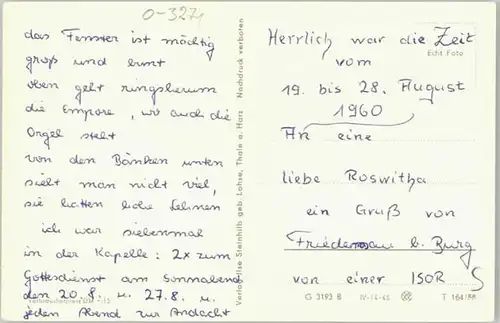 O-3271
das Fenster ist mächtig
groß und bunt
oben geht ringsherum
die Empore, wo auch die
Orgel steht
von den Bänken unten
sieht man nicht viel,
sie hatten hohe Lehnen
ich war siebenmal
in der Kapelle: 2x zum
Gottesdienst am Sonnabend
den 20.8. u. 27.8. u.
jeden Abend zur Andacht
Verlag Ilse Steinhilb geb. Lohse, Thale a. Harz Nachdruck verboten
Herrlich war die Zeit
Echt Foto
vom
19. bis 28. August
1960
An eine
liebe Roswitha
ein Gruß von
Friedensau b. Burg
von einer ISOR
S
G 3193 B IV-14-45 T 164/58